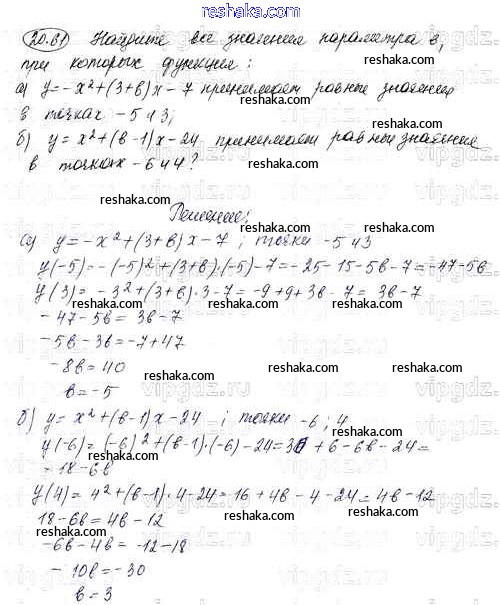 reshaka.com
20.61 Найдите все значения параметра в,
при которых функция:
а) y=-x²+(3+в)x-7 принимает равные значения
в точках -5 и 3;
б) y=x²+(в-1)x-24 принимает равные значения
в точках -6 и 4?
Решение:
а) y=-x²+(3+в)x-7; точки -5 и 3
y(-5)=-(-5)²+(3+в)·(-5)-7=-25-15-5в-7=-47-5в
y(3)=-3²+(3+в)·3-7=-9+9+3в-7=3в-7
-47-5в=3в-7
-5в-3в=-7+47
-8в=40
в=-5
б) y=x²+(в-1)x-24; точки -6; 4
y(-6)=(-6)²+(в-1)·(-6)-24=36+6-6в-24=
-18-6в
y(4)=4²+(в-1)·4-24=16+4в-4-24=4в-12
18-6в=4в-12
-6в-4в=-12-18
-10в=-30
в=3